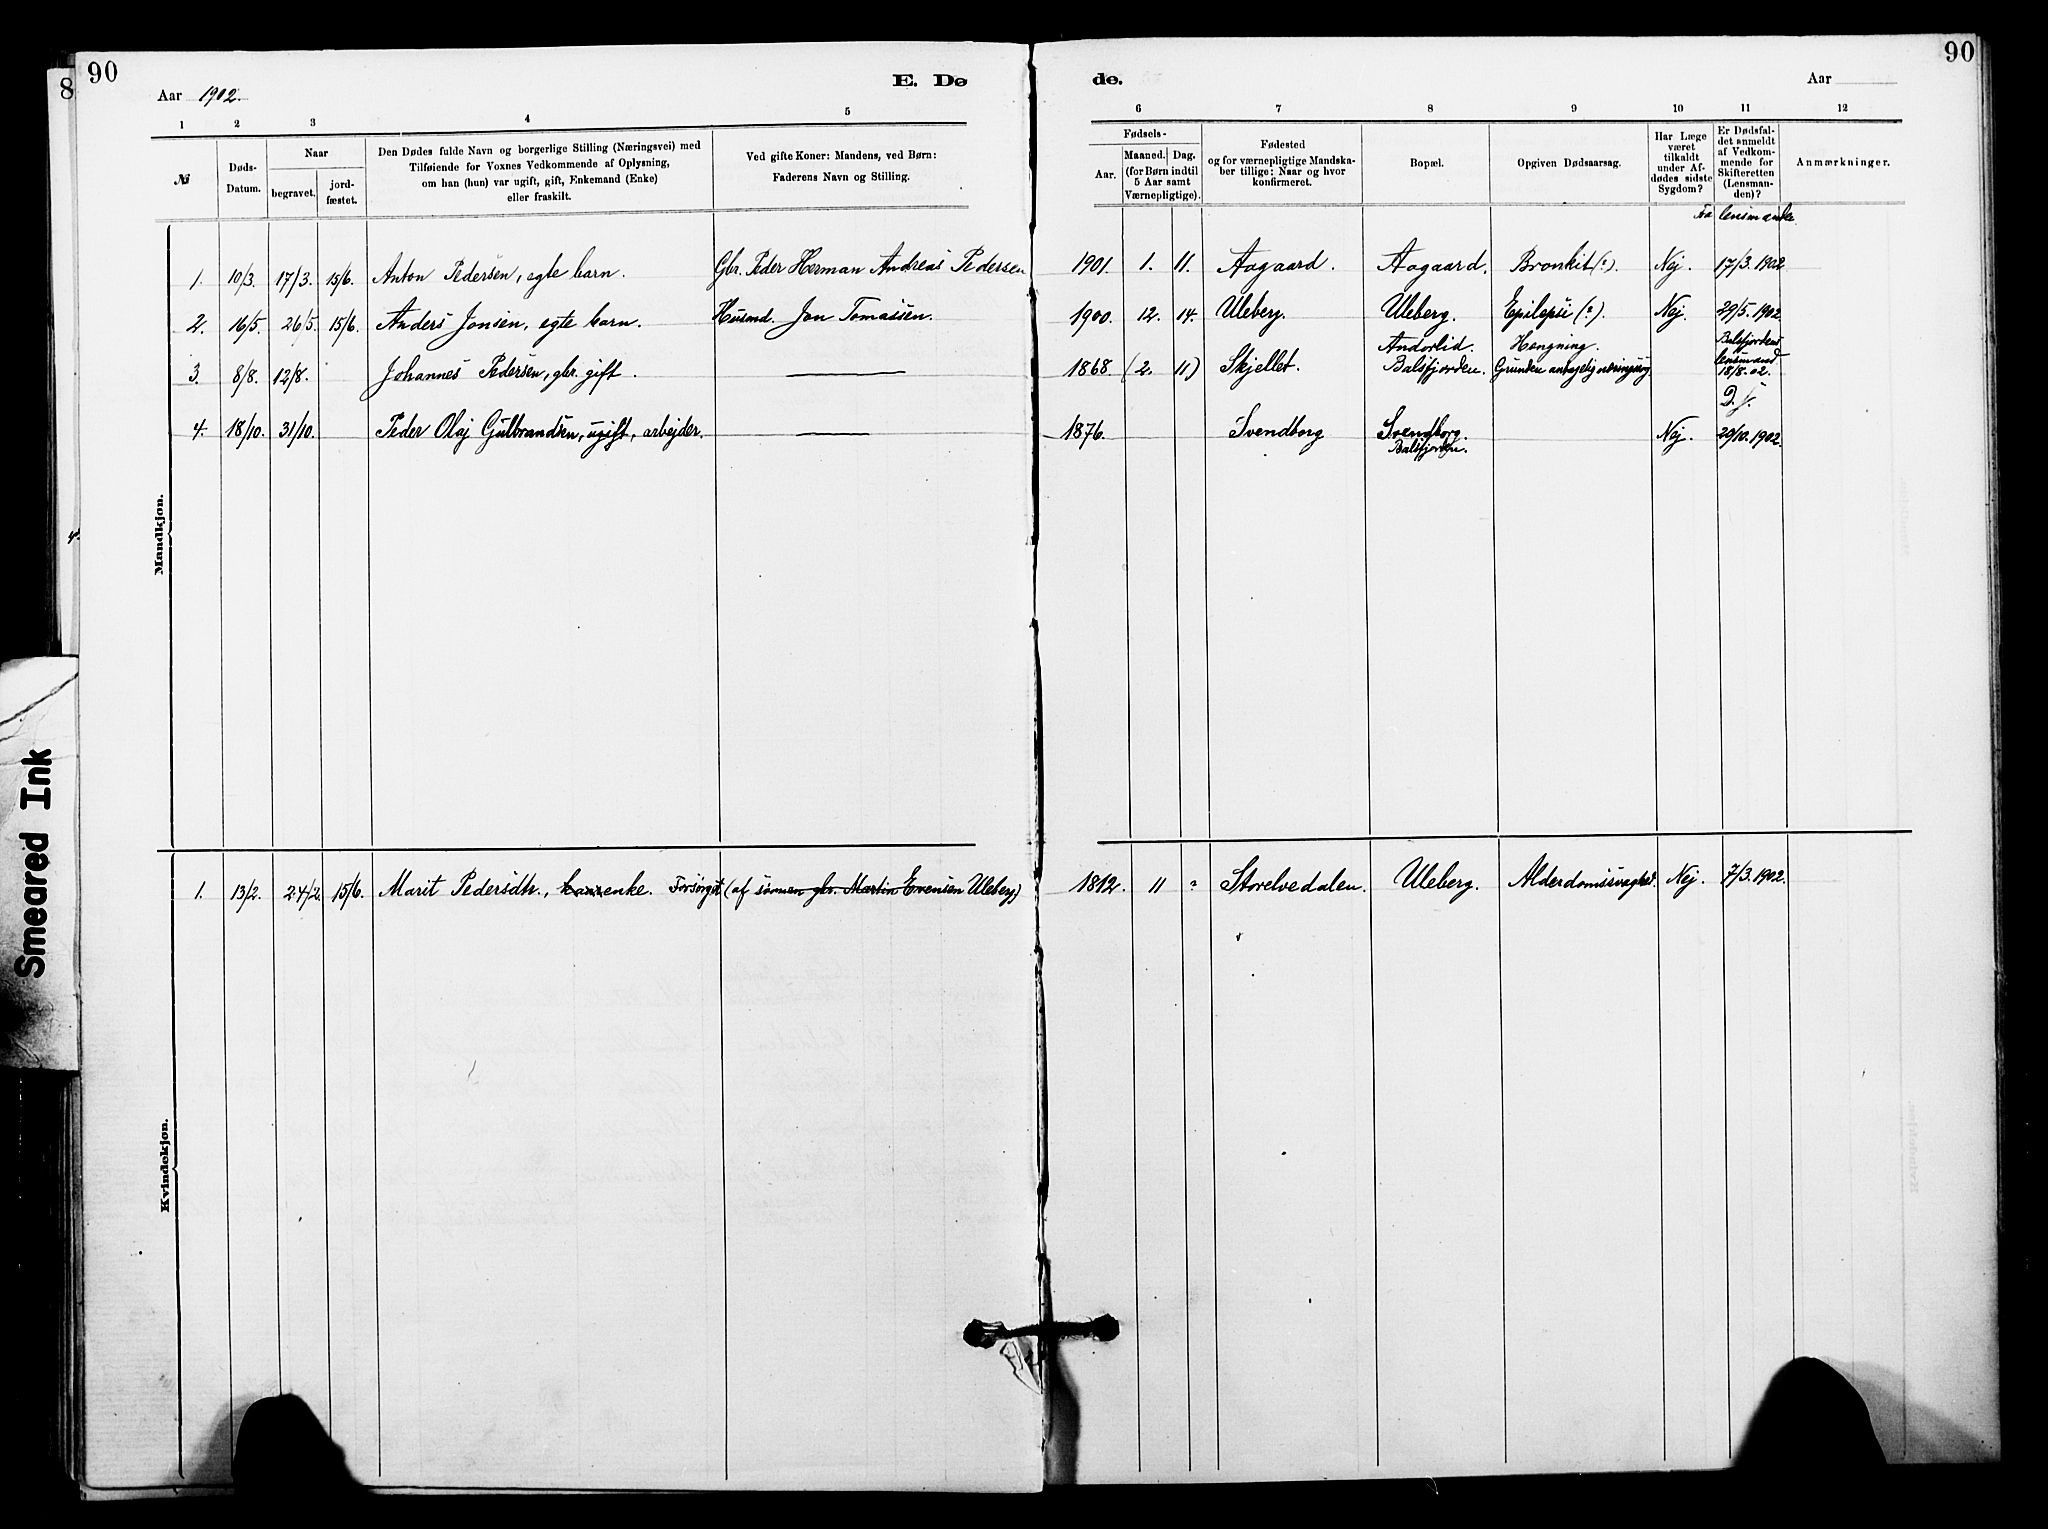 90
90
8
Aar 1902.
E. Dø
de.
Aar
1 2 3 4 5
6 7 8 9 10 11 12
№
Døds-
Datum.
Naar
begravet.
jord-
fæstet.
Den Dødes fulde Navn og borgerlige Stilling (Næringsvei) med
Tilføiende for Voxnes Vedkommende af Oplysning,
om han (hun) var ugift, gift, Enkemand (Enke)
eller fraskilt.
Ved gifte Koner: Mandens, ved Børn:
Faderens Navn og Stilling.
Fødsels-
Aar.
Maaned. Dag.
(for Børn indtil
5 Aar samt
Værnepligtige).
Fødested
og for værnepligtige Mandska-
ber tillige: Naar og hvor
konfirmeret.
Bopæl.
Opgiven Dødsaarsag.
Har Læge
været
tilkaldt
under Af-
dødes sidste
Sygdom?
Er Dødsfal-
det anmeldt
af Vedkom-
mende for
Skifteretten
(Lensman-
den)?
Anmærkninger.
Fra lensmanden
Mandkjøn.
1. 10/3. 17/3. 15/6. Anton Pedersen, egte barn. Gbr. Peder Herman Andreas Pedersen 1901. 1. 11. Aagaard. Aagaard. Bronkit (?). Nej. 17/3. 1902
2. 16/5. 26/5. 15/6. Anders Jonsen, egte barn. Husmd. Jon Tomassen. 1900. 12. 14. Uleberg. Uleberg. Epilepsi (?). Nej. 29/5. 1902
3. 8/8. 12/8. Johannes Pedersen, gbr. gift. 1868 (2. 11) Skjellet. Andorlid. Balsfjorden. Hengning. Grunden antagelig næringssorg Balsfjordens lensmand 18/8. 02.
D. s.
4. 18/10. 31/10. Peder Olaj Gulbrandsen, ugift, arbejder. 1876. Svendborg Svendborg. Balsfjorden. Nej. 20/10. 1902.
Kvindekjøn.
1. 13/2. 24/2. 15/6. Marit Pedersdtr., enke. Forsørget (af sønnen gbr. Martin Evensen Uleberg) 1812. 11 ? Storelvedalen. Uleberg. Alderdomssvaghed. Nej. 7/3. 1902.
Smeared Ink